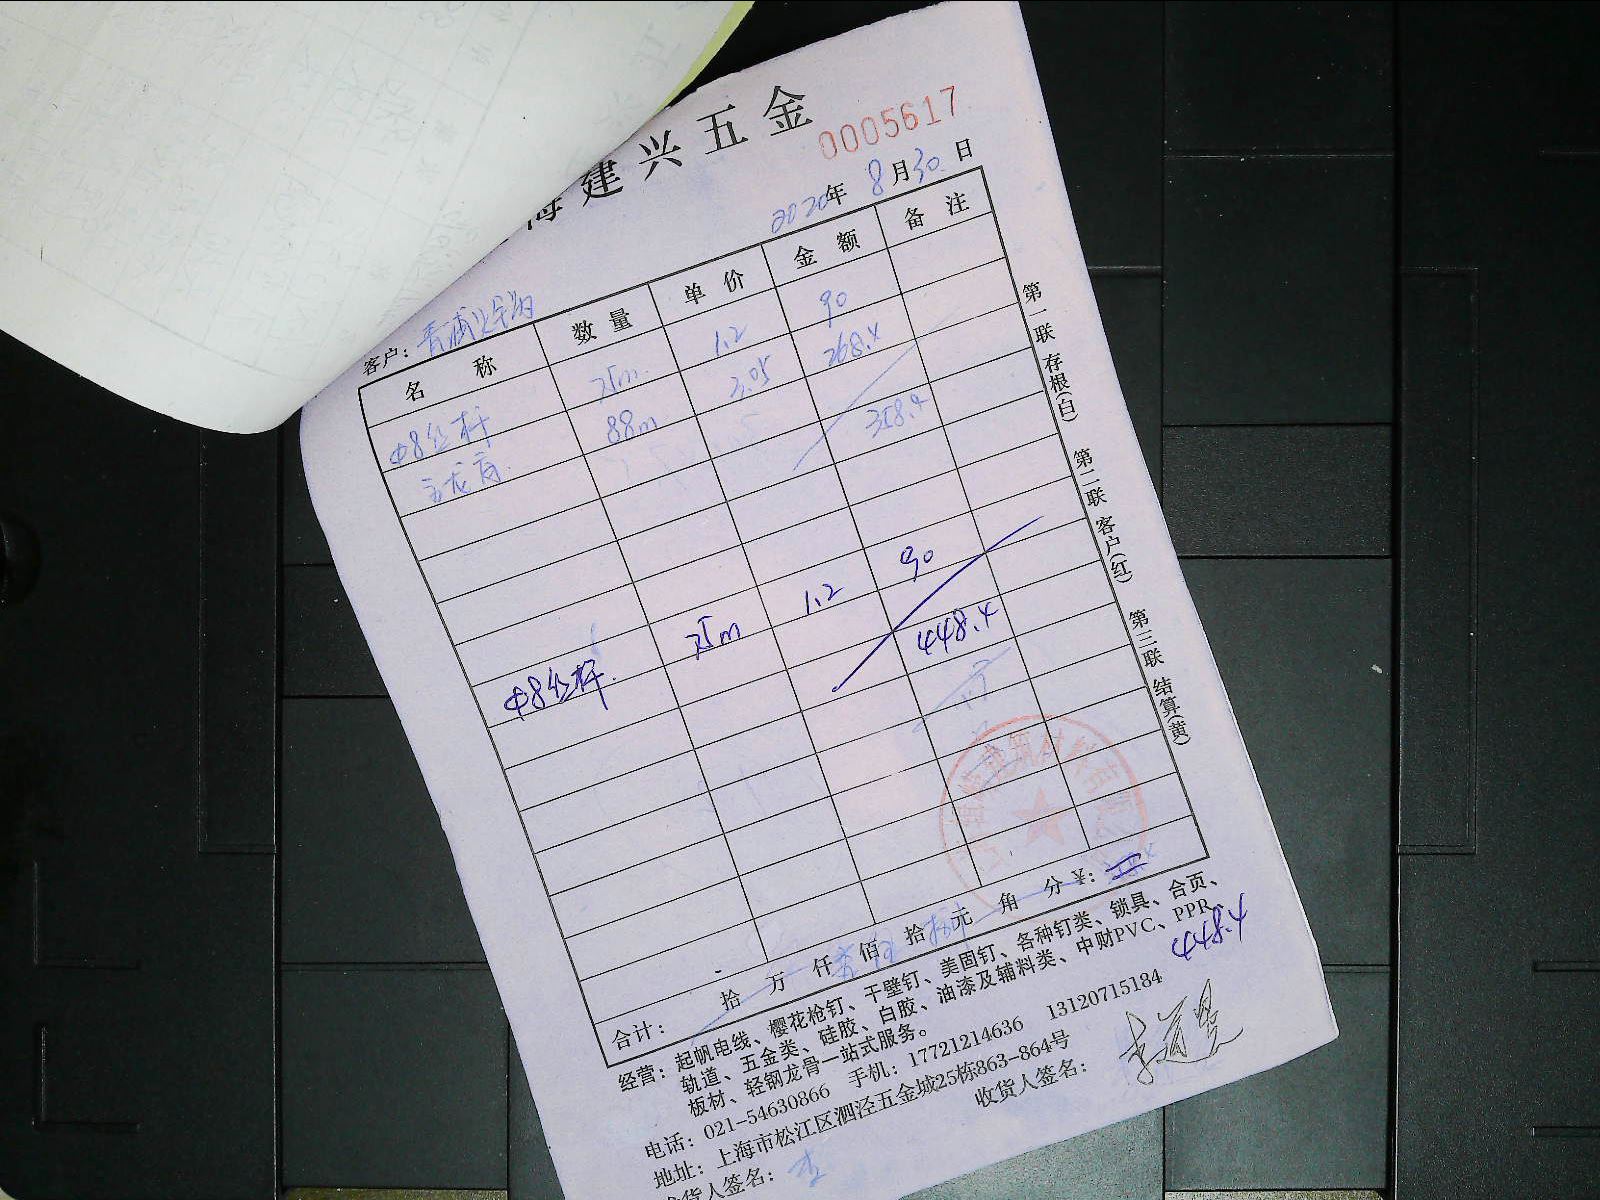 海建兴五金
0005617
2020年 8月30日
客户：青浦
名 称 数 量 单 价 金 额 备 注
Φ8丝杆 75m 1.2 90
主龙骨 88m 3.05 268.4
358.4
Φ8丝杆 75m 1.2 90
448.4
合计： 拾 万 仟 佰 拾 元 角 分 ¥：
448.4
经营：起帆电线、樱花枪钉、干壁钉、美固钉、各种钉类、锁具、合页、
轨道、五金类、硅胶、白胶、油漆及辅料类、中财PVC、PPR、
板材、轻钢龙骨一站式服务。
电话：021-54630866 手机：17721214636 13120715184
地址：上海市松江区泗泾五金城25栋863-864号
货人签名：李
收货人签名：
第一联 存根(白) 第二联 客户(红) 第三联 结算(黄)